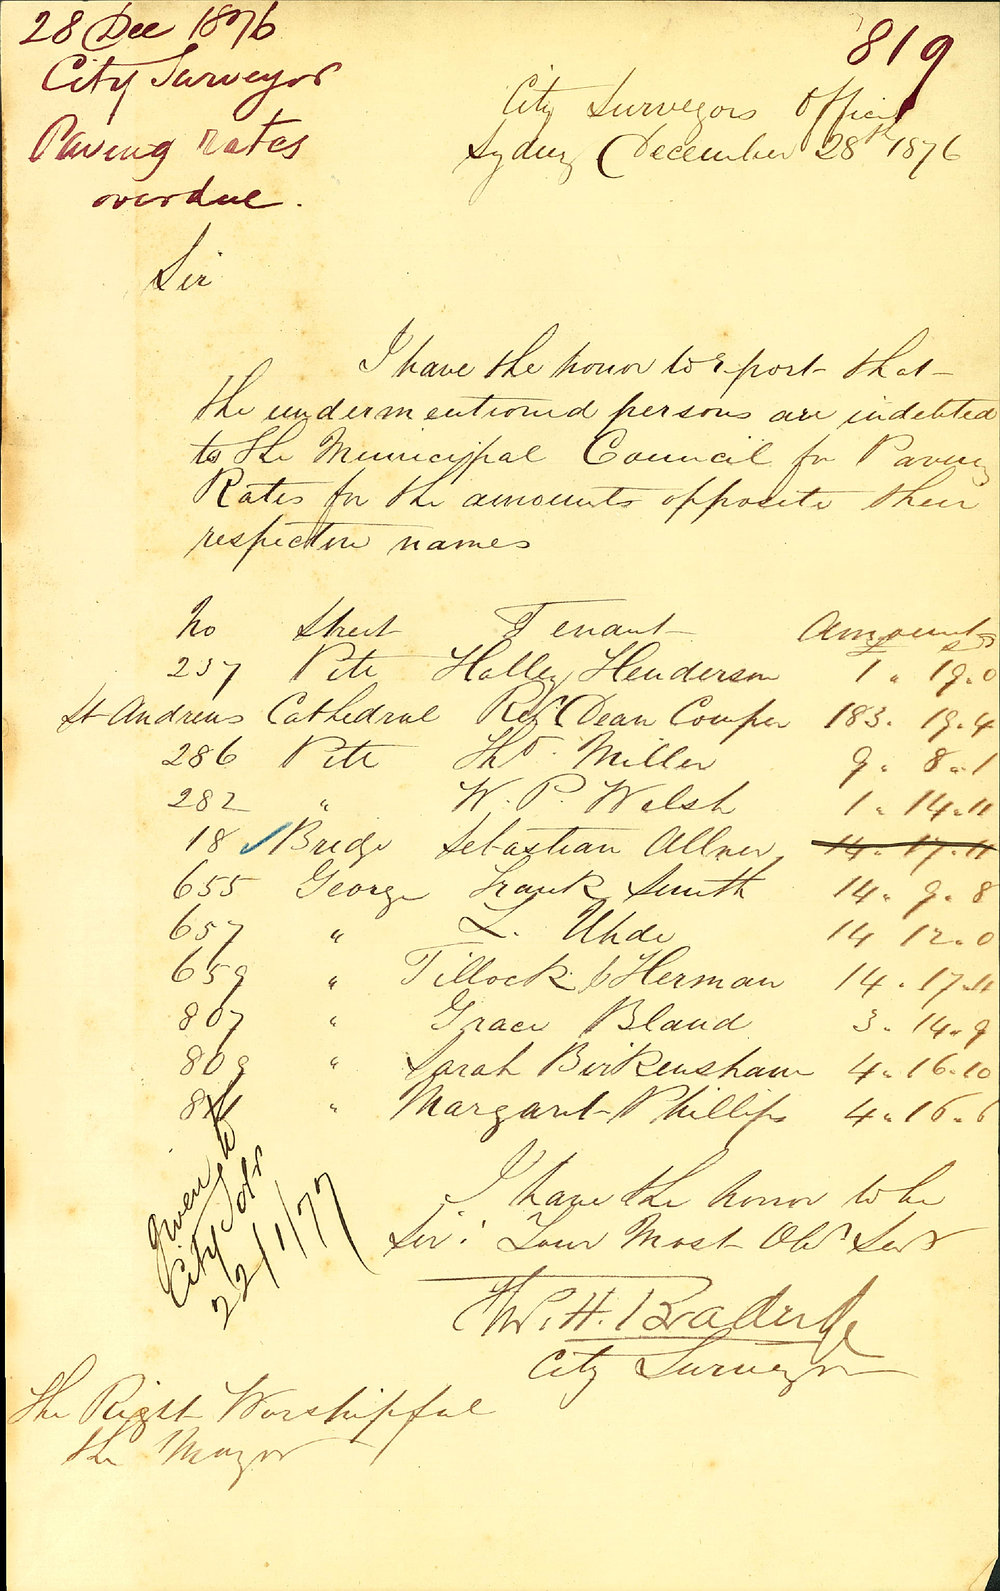 28 Dec 1876
City Surveyor
Paving rates
overdue.
819
City Surveyors Office
Sydney December 28th 1876
Sir
I have the honor to report that
the undermentioned persons are indebted
to the Municipal Council for Paving
Rates for the amounts opposite their
respective names
No Street Tenant Amount
£ s d
237 Pitt Holley Henderson 1 " 19 . 0
St Andrews Cathedral Revd Dean Cowper 183 . 19 . 4
286 Pitt Thos. Miller 9 . 8 . 1
282 " W. P. Walsh 1 . 14 . 11
18 ✓ Bridge Sebastian Allner 14 . 17 . 11
655 George Frank Smith 14 . 9 . 8
657 " L. Uhde 14 12 . 0
659 " Tillock & Herman 14 . 17 . 11
807 " Grace Bland 3 . 14 . 9
809 " Sarah Birkensham 4 . 16 . 10
" Margaret Phillips 4 . 16 . 6
Given to
City Solr
22/1/77
I have the honor to be
Sir: Your Most Obt Servt
City Surveyor
The Right Worshipful
the Mayor